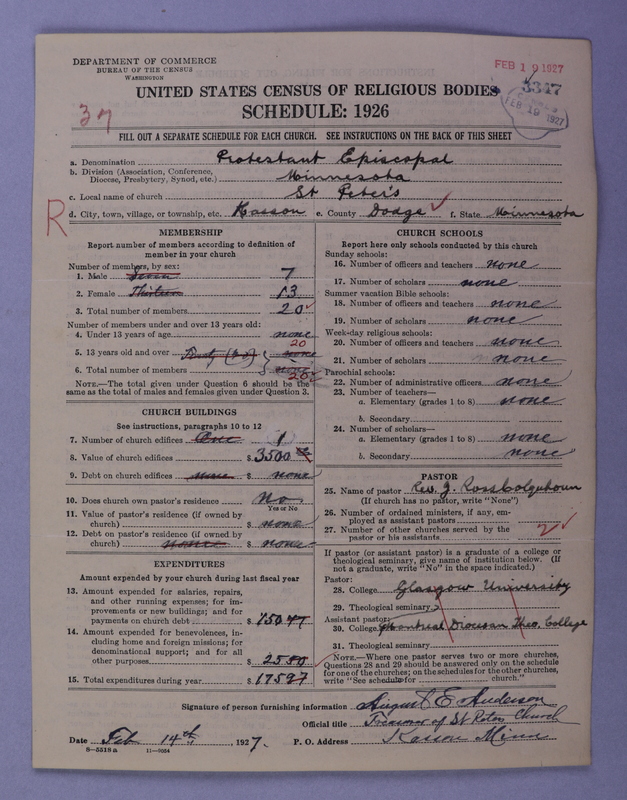 DEPARTMENT OF COMMERCE
BUREAU OF THE CENSUS
WASHINGTON
FEB 19 1927
3347
FEB 19 1927
UNITED STATES CENSUS OF RELIGIOUS BODIES
SCHEDULE: 1926
37
FILL OUT A SEPARATE SCHEDULE FOR EACH CHURCH. SEE INSTRUCTIONS ON THE BACK OF THIS SHEET
a. Denomination Protestant Episcopal
b. Division (Association, Conference,
Diocese, Presbytery, Synod, etc.) Minnesota
c. Local name of church St Peter's
R
d. City, town, village, or township, etc. Kasson e. County Dodge f. State Minnesota
MEMBERSHIP
Report number of members according to definition of
member in your church
Number of members, by sex:
1. Male Seven 7
2. Female Thirteen 13
3. Total number of members 20
Number of members under and over 13 years old:
4. Under 13 years of age none
5. 13 years old and over (20) none 20
6. Total number of members none 20
NOTE.—The total given under Question 6 should be the
same as the total of males and females given under Question 3.
CHURCH BUILDINGS
See instructions, paragraphs 10 to 12
7. Number of church edifices One 1
8. Value of church edifices $ 3500
9. Debt on church edifices none $ none
10. Does church own pastor's residence No
Yes or No
11. Value of pastor's residence (if owned by
church) $ none
12. Debt on pastor's residence (if owned by
church) $ none
EXPENDITURES
Amount expended by your church during last fiscal year
13. Amount expended for salaries, repairs,
and other running expenses; for im-
provements or new buildings; and for
payments on church debt $ 150
14. Amount expended for benevolences, in-
cluding home and foreign missions; for
denominational support; and for all
other purposes $ 25
15. Total expenditures during year $ 175
CHURCH SCHOOLS
Report here only schools conducted by this church
Sunday schools:
16. Number of officers and teachers none
17. Number of scholars none
Summer vacation Bible schools:
18. Number of officers and teachers none
19. Number of scholars none
Week-day religious schools:
20. Number of officers and teachers none
21. Number of scholars none
Parochial schools:
22. Number of administrative officers none
23. Number of teachers—
a. Elementary (grades 1 to 8) none
b. Secondary
24. Number of scholars—
a. Elementary (grades 1 to 8) none
b. Secondary none
PASTOR
25. Name of pastor Rev. J. Ross Colquhoun
(If church has no pastor, write "None")
26. Number of ordained ministers, if any, em-
ployed as assistant pastors
27. Number of other churches served by the
pastor or his assistants 2
If pastor (or assistant pastor) is a graduate of a college or
theological seminary, give name of institution below. (If
not a graduate, write "No" in the space indicated.)
Pastor:
28. College Glasgow University
29. Theological seminary
Assistant pastor:
30. College Montreal Diocesan Theo. College
31. Theological seminary
NOTE.—Where one pastor serves two or more churches,
Questions 28 and 29 should be answered only on the schedule
for one of the churches; on the schedules for the other churches,
write "See schedule for church."
Signature of person furnishing information August E. Anderson
Official title Treasurer of St Peters Church
Date Feb 14th, 1927. P. O. Address Kasson Minn
8—5518a 11—9054